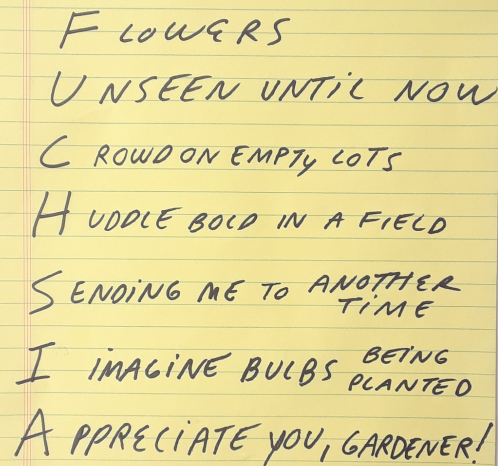 FLOWERS
UNSEEN UNTIL NOW
CROWD ON EMPTY LOTS
HUDDLE BOLD IN A FIELD
SENDING ME TO ANOTHER
TIME
I IMAGINE BULBS BEING
PLANTED
APPRECIATE YOU, GARDENER!